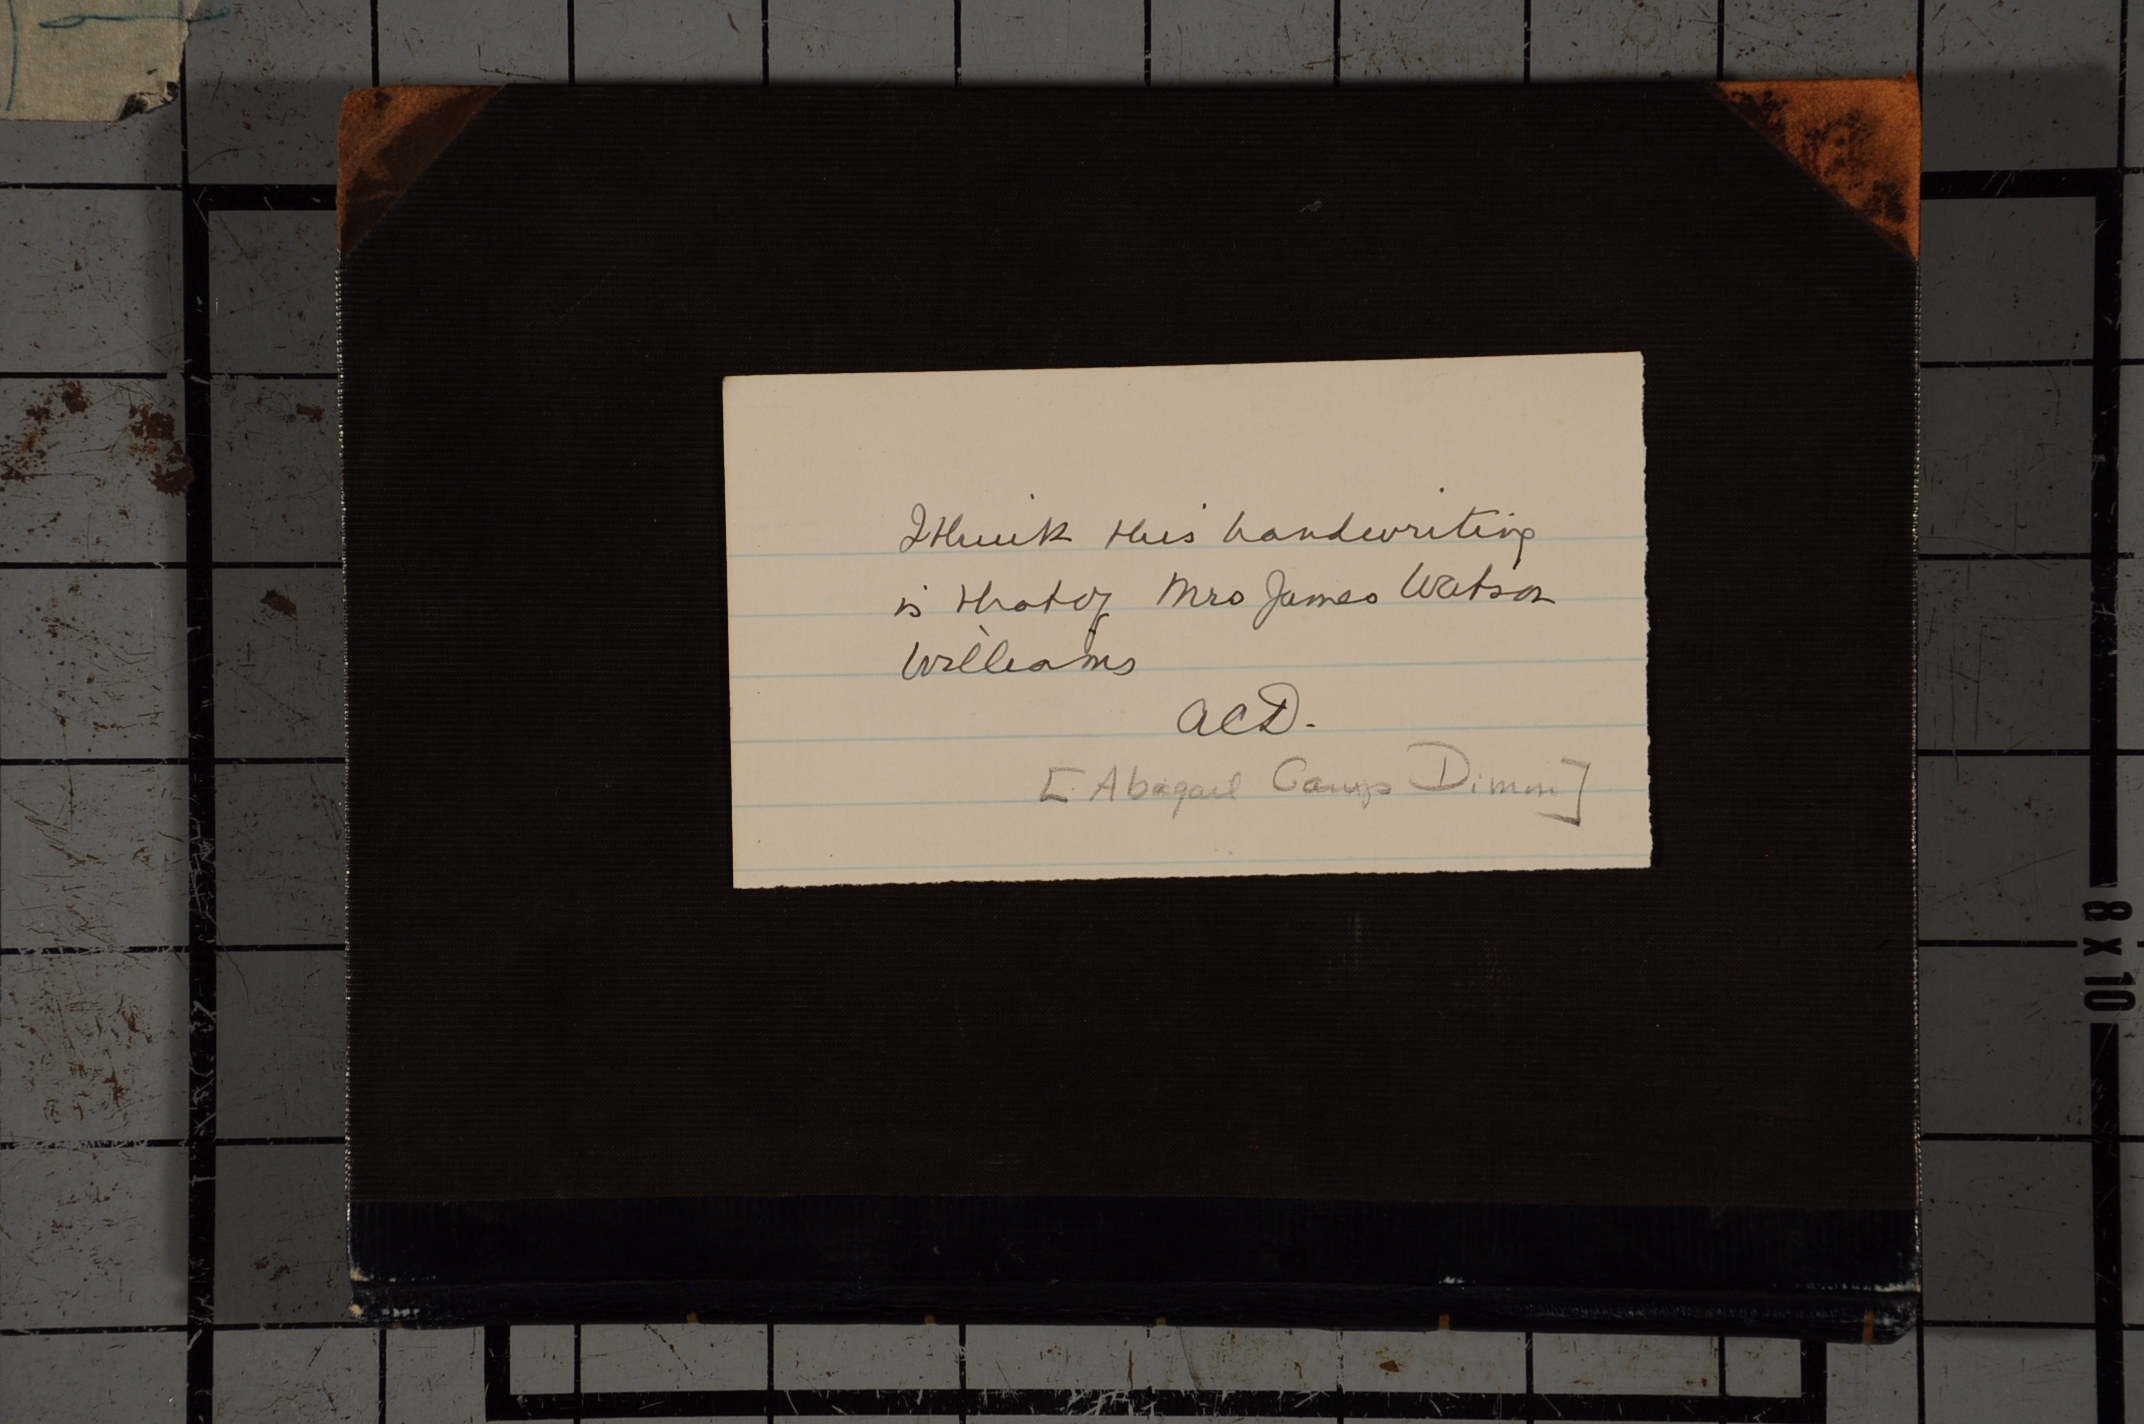 I think this handwriting
is that of Mrs James Watson
Williams
ACD.
[Abagail Camp Dimon]
8 X 10